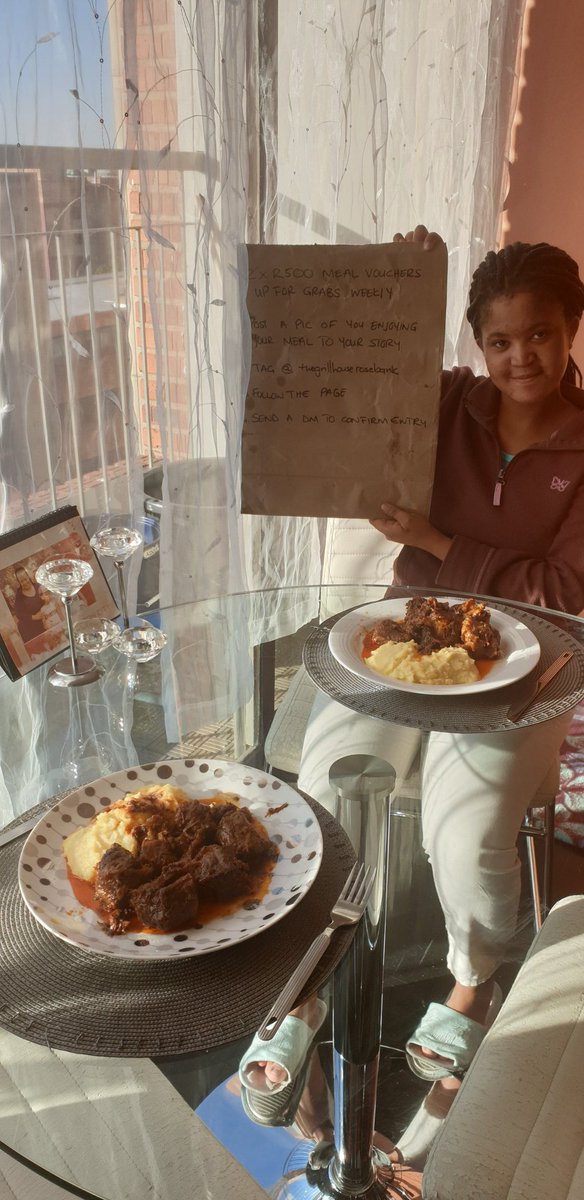 2 x R500 MEAL VOUCHERS
UP FOR GRABS WEEKLY
POST A PIC OF YOU ENJOYING
YOUR MEAL TO YOUR STORY
TAG @ thegrillhouserosebank
FOLLOW THE PAGE
SEND A DM TO CONFIRM ENTRY